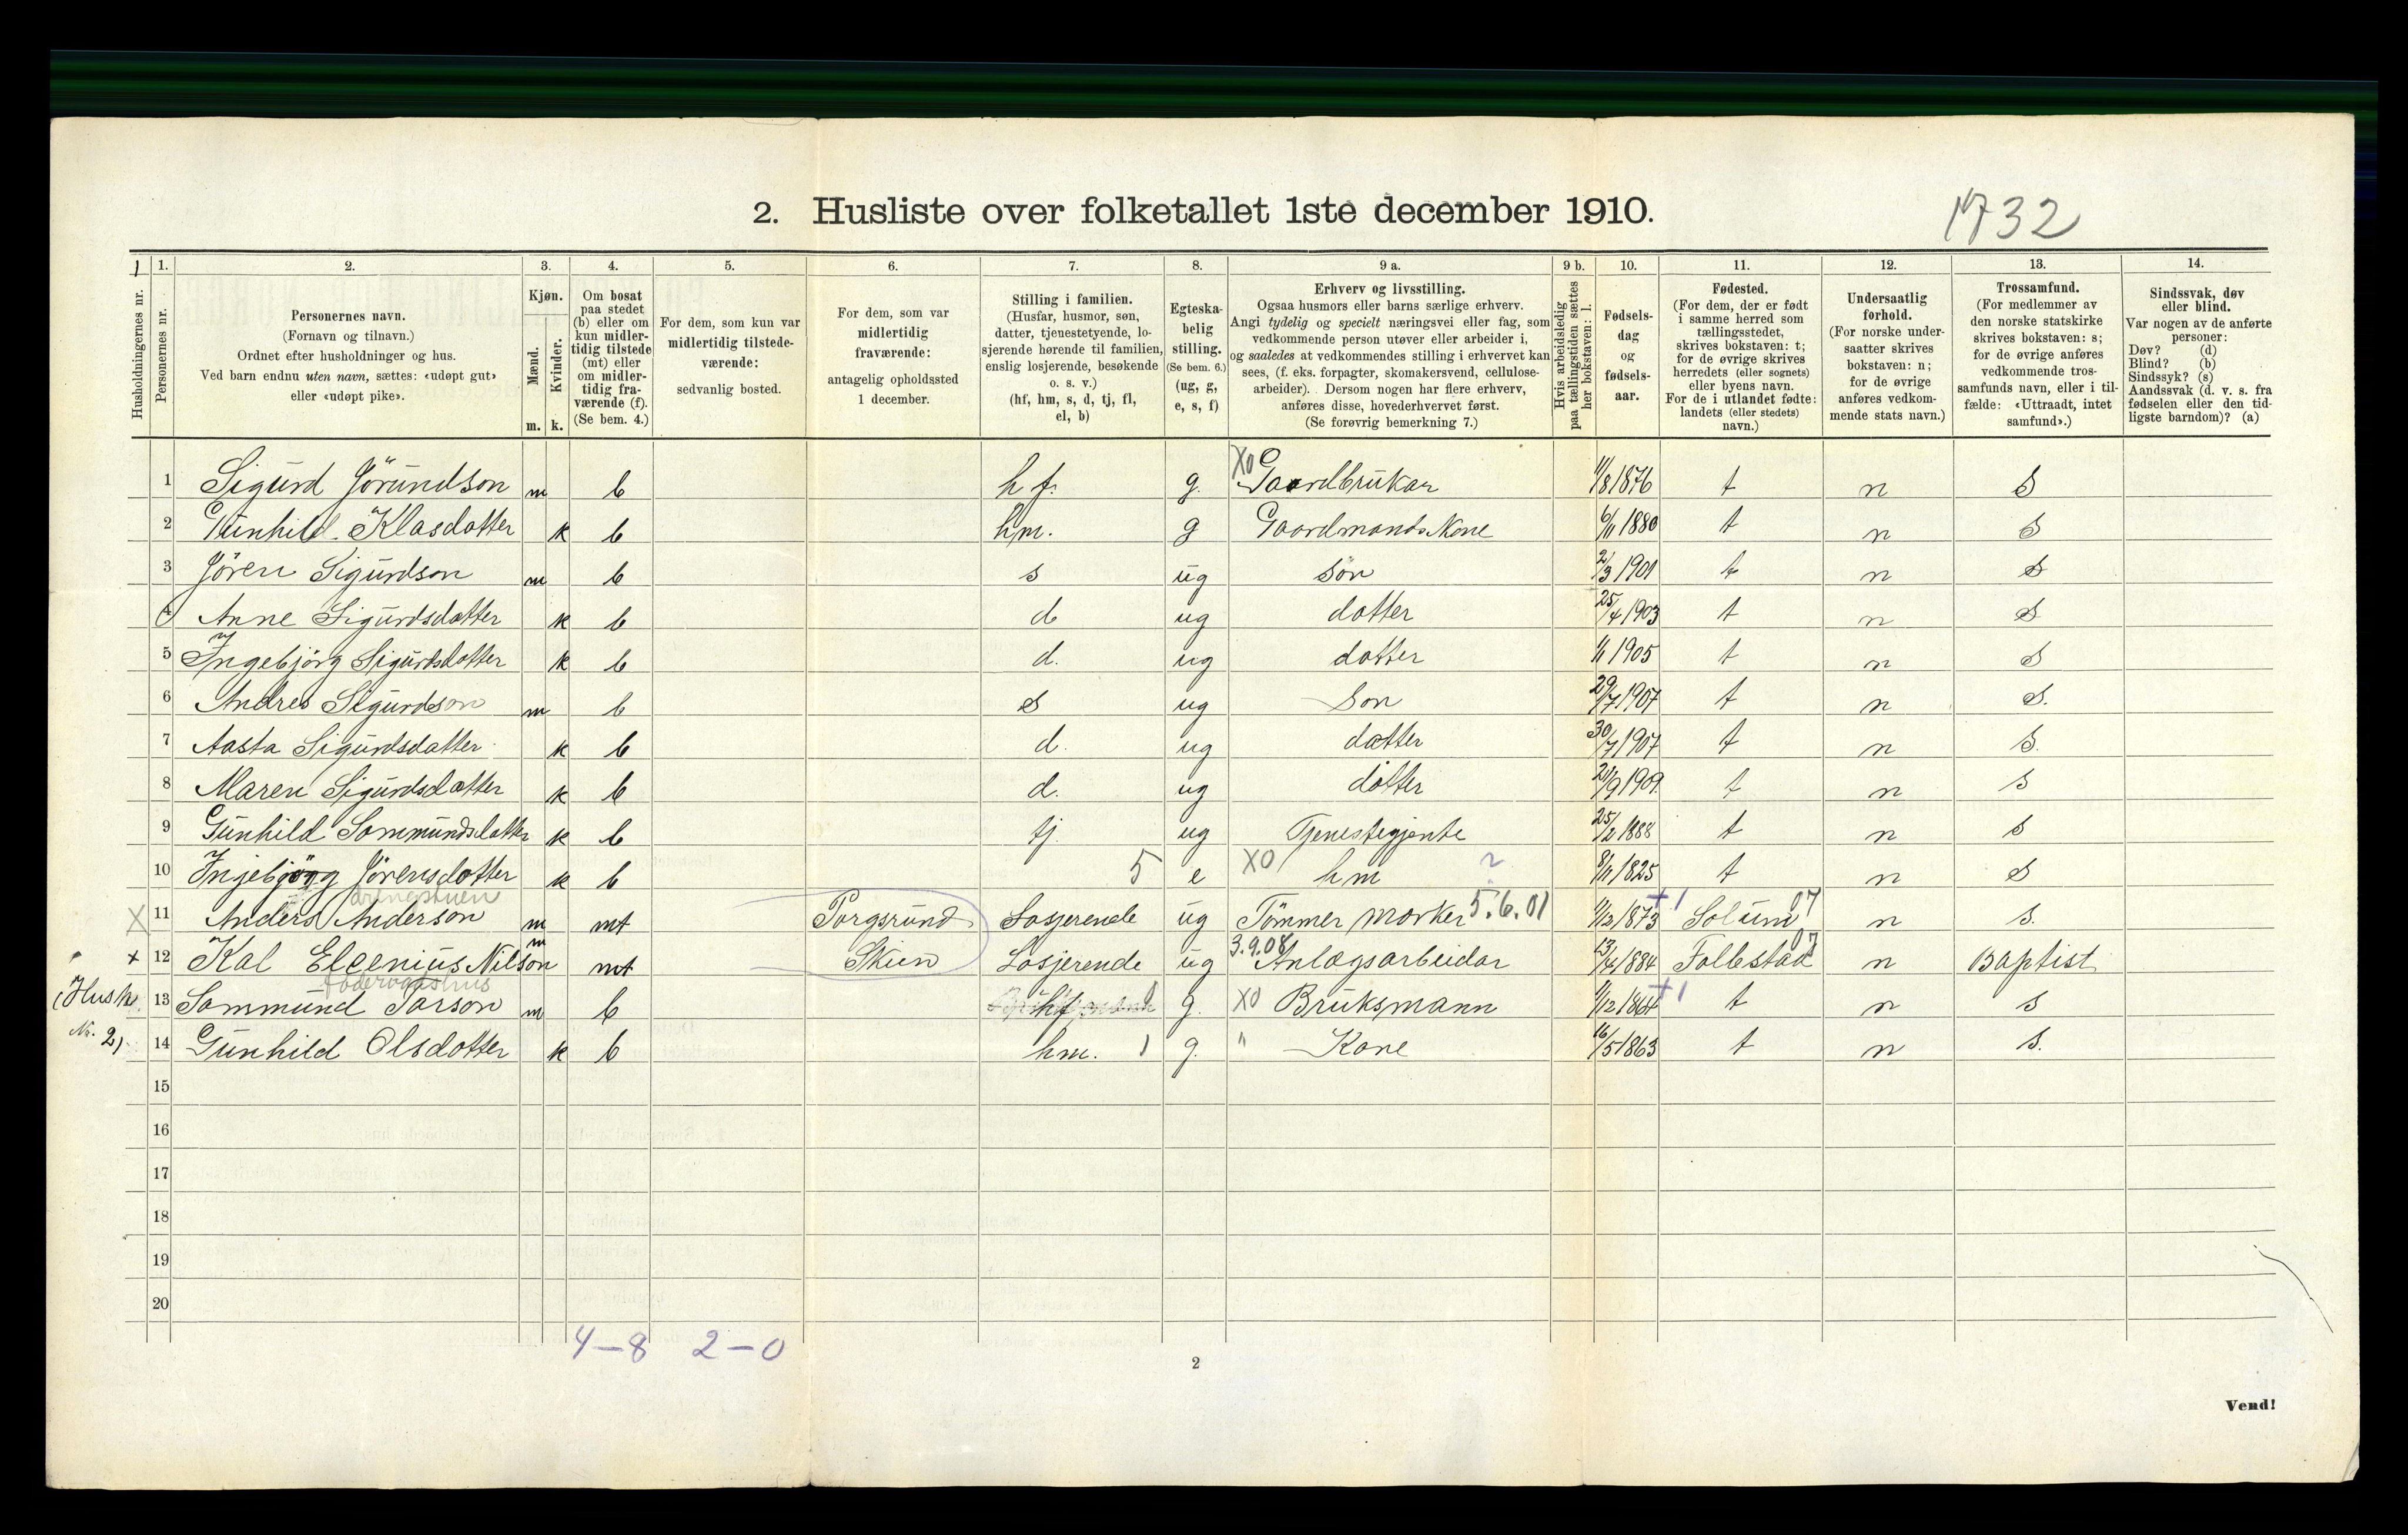 2. Husliste over folketallet 1ste december 1910.
1732
1 1. 2. 3. 4. 5. 6. 7. 8. 9 a. 9 b. 10. 11. 12. 13. 14.
Husholdningernes nr.
Personernes nr.
Personernes navn.
(Fornavn og tilnavn.)
Ordnet efter husholdninger og hus.
Ved barn endnu uten navn, sættes: «udøpt gut»
eller «udøpt pike».
Kjøn.
Mænd.
Kvinder.
m. k.
Om bosat
paa stedet
(b) eller om
kun midler-
tidig tilstede
(mt) eller
om midler-
tidig fra-
værende (f).
(Se bem. 4.)
For dem, som kun var
midlertidig tilstede-
værende:
sedvanlig bosted.
For dem, som var
midlertidig
fraværende:
antagelig opholdssted
1 december.
Stilling i familien.
(Husfar, husmor, søn,
datter, tjenestetyende, lo-
sjerende hørende til familien,
enslig losjerende, besøkende
o. s. v.)
(hf, hm, s, d, tj, fl,
el, b)
Egteska-
belig
stilling.
(Se bem. 6.)
(ug, g,
e, s, f)
Erhverv og livsstilling.
Ogsaa husmors eller barns særlige erhverv.
Angi tydelig og specielt næringsvei eller fag, som
vedkommende person utøver eller arbeider i,
og saaledes at vedkommendes stilling i erhvervet kan
sees, (f. eks. forpagter, skomakersvend, cellulose-
arbeider). Dersom nogen har flere erhverv,
anføres disse, hovederhvervet først.
(Se forøvrig bemerkning 7.)
Hvis arbeidsledig
paa tællingstiden sættes
her bokstaven: l.
Fødsels-
dag
og
fødsels-
aar.
Fødested.
(For dem, der er født
i samme herred som
tællingsstedet,
skrives bokstaven: t;
for de øvrige skrives
herredets (eller sognets)
eller byens navn.
For de i utlandet fødte:
landets (eller stedets)
navn.)
Undersaatlig
forhold.
(For norske under-
saatter skrives
bokstaven: n;
for de øvrige
anføres vedkom-
mende stats navn.)
Trossamfund.
(For medlemmer av
den norske statskirke
skrives bokstaven: s;
for de øvrige anføres
vedkommende tros-
samfunds navn, eller i til-
fælde: «Uttraadt, intet
samfund».)
Sindssvak, døv
eller blind.
Var nogen av de anførte
personer:
Døv? (d)
Blind? (b)
Sindssyk? (s)
Aandssvak (d. v. s. fra
fødselen eller den tid-
ligste barndom)? (a)
1 Sigurd Jörundson m b hf. g. XO Gaardbrukar 11/8 1876 t n S
2 Gunhild Klasdatter k b hm. g Gaardmands Kone 6/11 1880 t n S
3 Jören Sigurdson m b s ug sön 2/3 1901 t n S
4 Anne Sigurdsdatter k b d ug datter 25/4 1903 t n S
5 Ingebjörg Sigurdsdatter k b d. ug datter 1/1 1905 t n S
6 Andres Sigurdson m b S ug Son 29/7 1907 t n S.
7 Aasta Sigurdsdatter k b d. ug datter 30/7 1907 t n S.
8 Maren Sigurdsdatter k b d. ug datter 21/9 1909 t n S
9 Gunhild Sommundsdatter k b tj. ug Tjenestegjente 25/2 1888 t n S
10 Injebjörg Jörensdotter k b 5 e XO hm ? 8/11 1825 t n S
drengstuen
X 11 Anders Anderson m mt Porgsrund Losjerende ug Tömmer morker 5.6.01 11/12 1873 +1 Solum 07 n S.
x 12 Kal Elcenius Nilson m mt Skien Losjerende ug 3.9.08 Anlægsarbeidar 13/4 1884 Follestad 07 n Baptist
föderaadshus
(Hush. 13 Sommund Tarson m b hf g. XO Bruksmann 11/12 1864 +1 t n S
Nr. 2) 14 Gunhild Olsdotter k b hm. 1 g. " Kone 16/5 1863 t n S.
15
16
17
18
19
20
4-8 2-0
2
Vend!